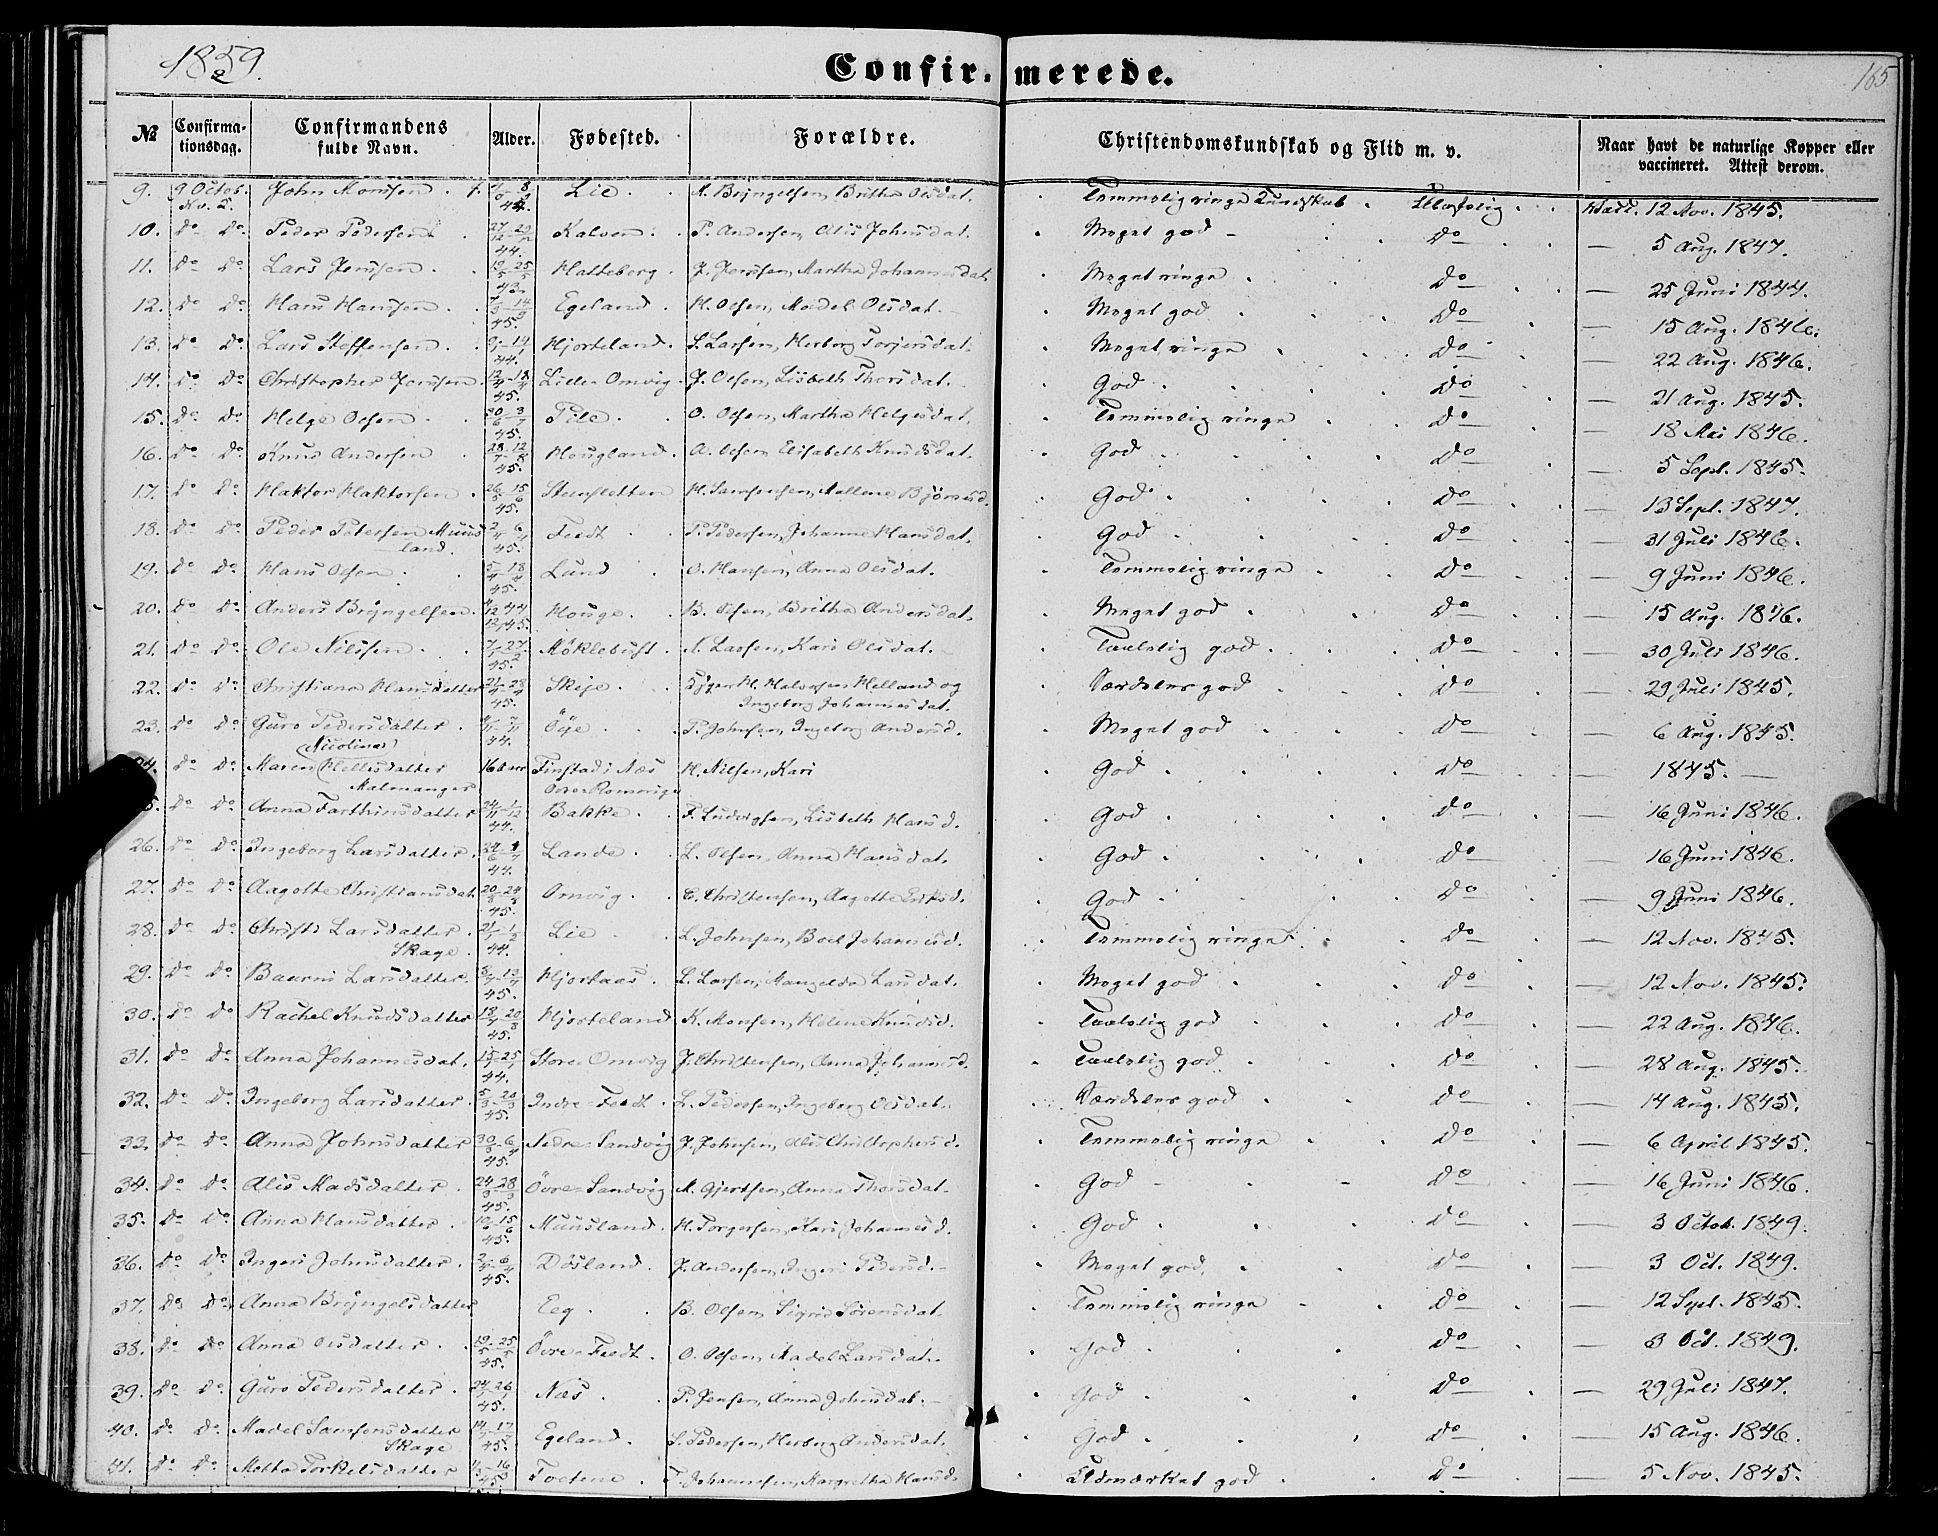 1859.
Confirmerede.
165
№ Confirmationsdag. Confirmandens fulde Navn. Alder. Fødested. Forældre. Christendomskundskab og Flid m. v. Naar havt de naturlige Kopper eller vaccineret. Attest derom.
9. 9 Octob. John Monsen Lie M. Bryngelsen, Britha Olsdat. Temmelig ringe Kundskab. Vacc. 12 Nov. 1845.
10. Do Do Peder Pedersen 44. Kalven P. Andersen, Alis Johnsdat. Meget god Do — 5 Aug. 1847.
11. Do Do Lars Jensen 43. Hatteberg J. Jensen, Martha Johannesdat. Meget ringe Do — 25 Juni 1847.
12. Do Do Hans Hansen 45. Egeland H. Olsen, Madel Olsdat. Meget god Do — 15 Aug. 1846.
13. Do Do Lars Steffensen 44. Hjorteland S. Larsen, Herborg Torjersdat. Meget ringe Do — 22 Aug. 1846.
14. Do Do Christopher Jensen 45. Lille-Omvig J. Olsen, Lisbeth Thorsdat. God Do — 21 Aug. 1845.
15. Do Do Helge Olsen 45. Tele O. Olsen, Martha Helgesdat. Temmelig ringe Do — 18 Mai 1846.
16. Do Do Knud Andersen 45. Hougland A. Olsen, Elisabeth Knudsdat. God Do — 5 Sept. 1845.
17. Do Do Haktor Haktorsen 45. Steensletten H. Samsonsen, Mallene Bjørnsd. God Do — 13 Sept. 1847.
18. Do Do Peder Petersen Muusland. 45. Feedt P. Pedersen, Johanne Hansdat. God Do — 31 Juli 1846.
19. Do Do Hans Olsen 45. Lund O. Hansen, Anna Olsdat. Temmelig ringe Do — 9 Juni 1846.
20. Do Do Anders Bryngelsen Houge B. Olsen, Britha Andersdat. Meget god Do — 15 Aug. 1846.
21. Do Do Ole Nilssen 45 Møklebust N. Larsen, Kari Olsdat. Taalelig god Do — 30 Juli 1846.
22. Do Do Christiana Hansdatter 45. Skeje H. Halvorsen Helland og
Ingeborg Johannesdat. Særdeles god Do — 29 Juli 1845.
23. Do Do Guro Pedersdatter 44. Øye P. Johnsen, Ingeborg Andersd. Meget god Do — 6 Aug. 1845.
24. Do Do Maren (Nicolina) Hellesdatter
Malmanger 16 Finstad i Næs
Øvre Romerige H. Nilsen, Kari God Do — 1845.
25. Do Do Anna Farthinsdatter 44. Bakke F. Ludvigsen, Lisbeth Hansd. God Do — 16 Juni 1846.
26. Do Do Ingeborg Larsdatter 44. Lande L. Olsen, Anna Hansdat. God Do — 16 Juni 1846.
27. Do Do Aagotte Christiansdat. 45. Omvig C. Christensen, Aagotte Eriksd. God Do — 9 Juni 1846.
28. Do Do Christi Larsdatter
Skage 44. Lie L. Johnsen, Boel Johannesd. Temmelig ringe Do — 12 Nov. 1845.
29. Do Do Baarni Larsdatter 45. Hjortaas L. Larsen, Mangelda Larsdat. Meget god Do — 12 Nov. 1845.
30. Do Do Rachel Knudsdatter 45. Hjorteland K. Monsen, Helene Knudsd. Taalelig god Do — 22 Aug. 1846.
31. Do Do Anna Johannesdat. 44. Store-Omvig J. Christensen, Anna Johannesd. Taalelig god Do — 28 Aug. 1845.
32. Do Do Ingeborg Larsdatter 45. Indre-Feedt L. Pedersen, Ingeborg Olsdat. Særdeles god Do — 14 Aug. 1845.
33. Do Do Anna Johnsdatter 45. Nedre-Sandvig J. Johnsen, Alis Christophersd. Temmelig ringe Do — 6 April 1845.
34. Do Do Alis Madsdatter 45. Øvre-Sandvig M. Gjertsen, Anna Thorsdat. God Do — 16 Juni 1846.
35. Do Do Anna Hansdatter 45. Muusland H. Torgersen, Kari Johannesd. God Do — 3 Octob. 1849.
36. Do Do Ingeri Johnsdatter 45. Døsland J. Andersen, Ingeri Pedersd. Meget god Do — 3 Oct. 1849.
37. Do Do Anna Bryngelsdatter Eeg B. Olsen, Sigrid Sørensdat. Temmelig ringe Do — 12 Sept. 1845.
38. Do Do Anna Olsdatter 45. Øvre-Feedt O. Olsen, Madel Larsdat. God Do — 3 Oct. 1849.
39. Do Do Guro Pedersdatter 45. Næs P. Jensen, Anna Johnsdat. God Do — 29 Juli 1847.
40. Do Do Madel Samsonsdatter
Skage 45. Egeland S. Pedersen, Herborg Andersdat. God Do — 15 Aug. 1846.
41. Do Do Metta Torkelsdatter 45. T. Johannesen, Margretha Hansd. Udmærket god Do — 5 Nov. 1845.